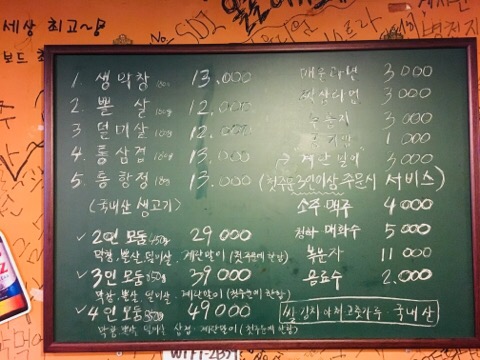 세상 최고~!
보드
1. 생막창 13.000
2. 뽈살 12.000
3. 덜미살 12.000
4. 통삼겹 13.000
5. 통항정 13.000
(국내산 생고기)
✓ 2인 모둠 450g 29 000
막창, 뽈살, 덜미살, 계란말이 (첫주문에 한함)
✓ 3인 모둠 39 000
막창, 뽈살, 덜미살, 계란말이 (첫주문에 한함)
✓ 4인 모둠 49 000
막창, 뽈살, 덜미살, 삼겹, 계란말이 (첫주문에 한함)
매운라면 3 000
3 000
누룽지 3 000
공기밥 1 000
계란말이 3 000
(첫주문 3인이상 주문시 서비스)
소주 맥주 4 000
청하 매화수 5 000
복분자 11 000
음료수 2.000
쌀 김치 야채 고춧가루 국내산